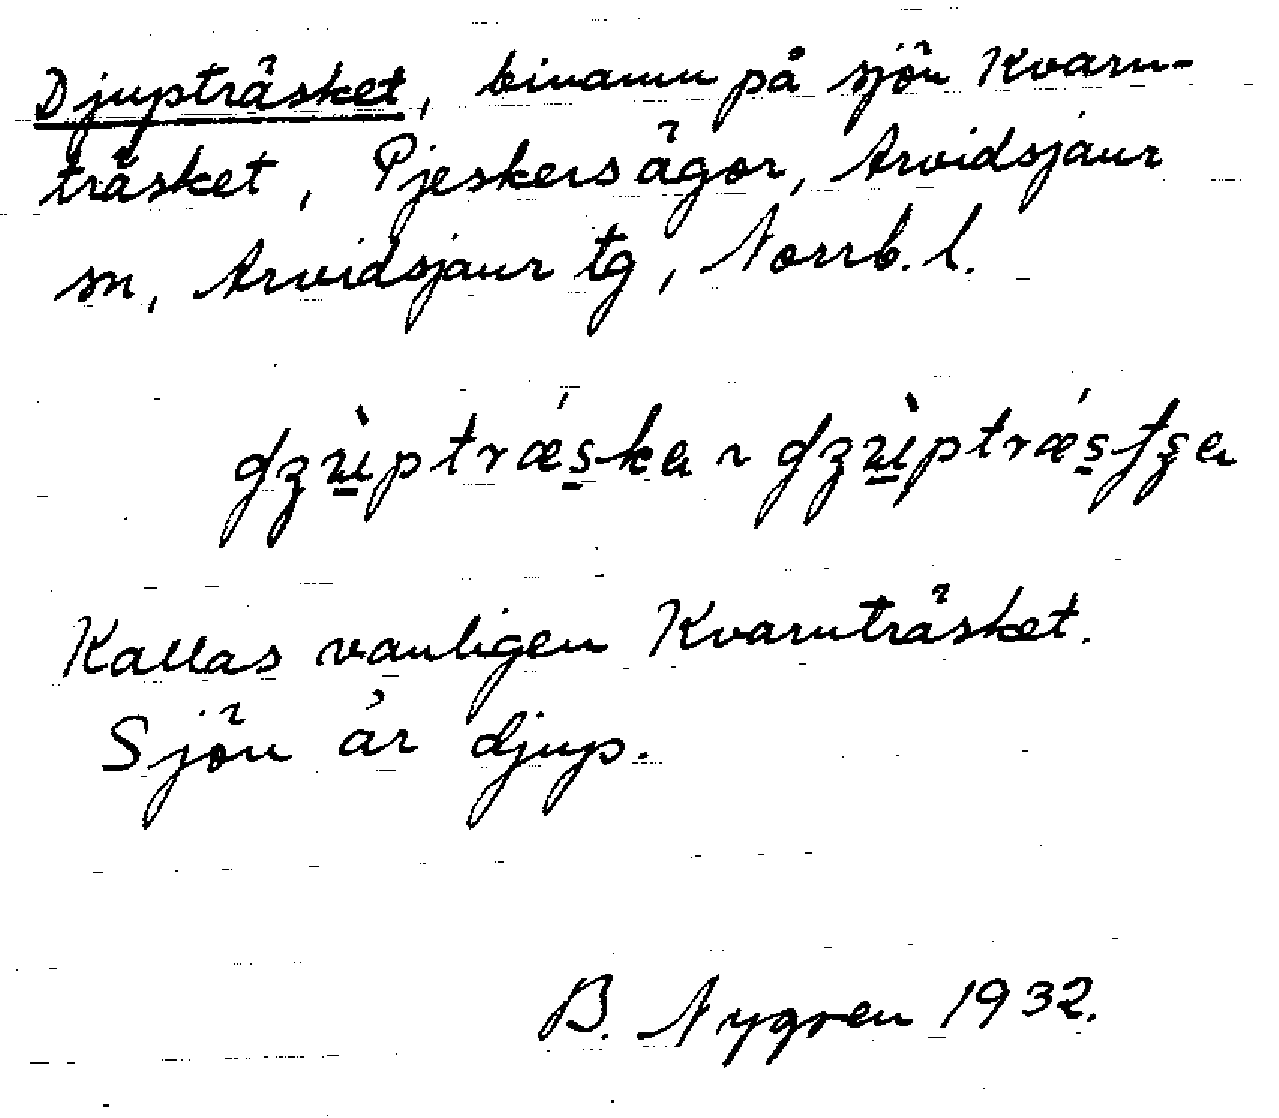 Djupträsket, binamn på sjön Kvarn-
träsket, Pjeskersägor, Arvidsjaur
sn, Arvidsjaur tg, Norrb. l.
Kallas vanligen Kvarnträsket.
Sjön är djup.
B. Nygren 1932.